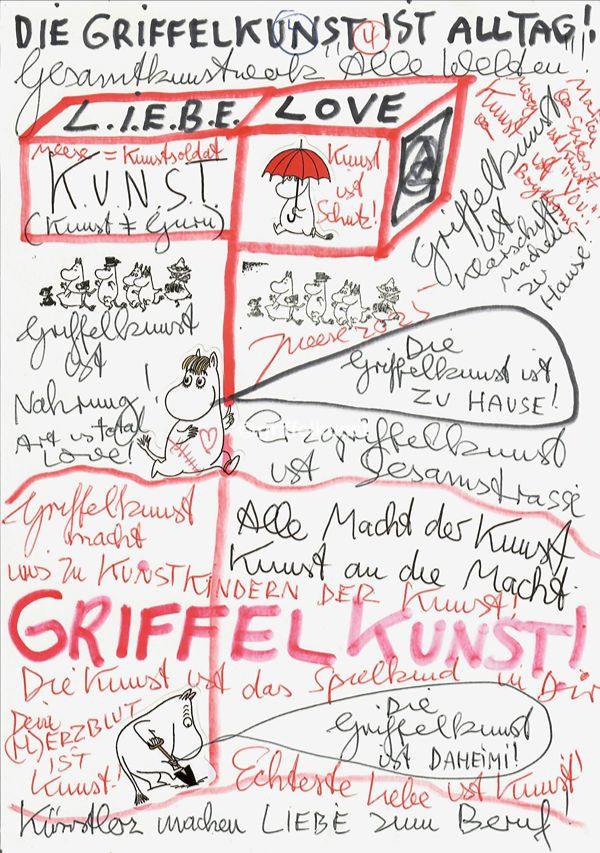 DIE GRIFFELKUNST IST ALLTAG!
4 4
Gesamtkunstwerk "Alle Welten"!
L.I.E.B.E. LOVE
Meese = Kunstsoldat
K.U.N.S.T.
(Kunst ≠ Guru)
Kunst
ist
Schutz!
Kunst
Griffelkunst
ist
Klatschift
zu
Hause!
ist YOU!!
Griffelkunst
ist
Nahrung!
Art is total
Love!
Meese 2025
Die
Griffelkunst ist
ZU HAUSE!
Erzgriffelkunst
ist Gesamstrasse
Griffelkunst
macht
uns zu KUNSTKINDERN DER Kunst!
Alle Macht der Kunst
Kunst an die Macht.
GRIFFELKUNST!
Die Kunst ist das Spielkind in Dir
Deine
(H)ERZBLUT
IST
Kunst!
Die
Griffelkunst
ist DAHEIM!
Echteste Liebe ist Kunst!
Künstler machen LIEBE zum Beruf!